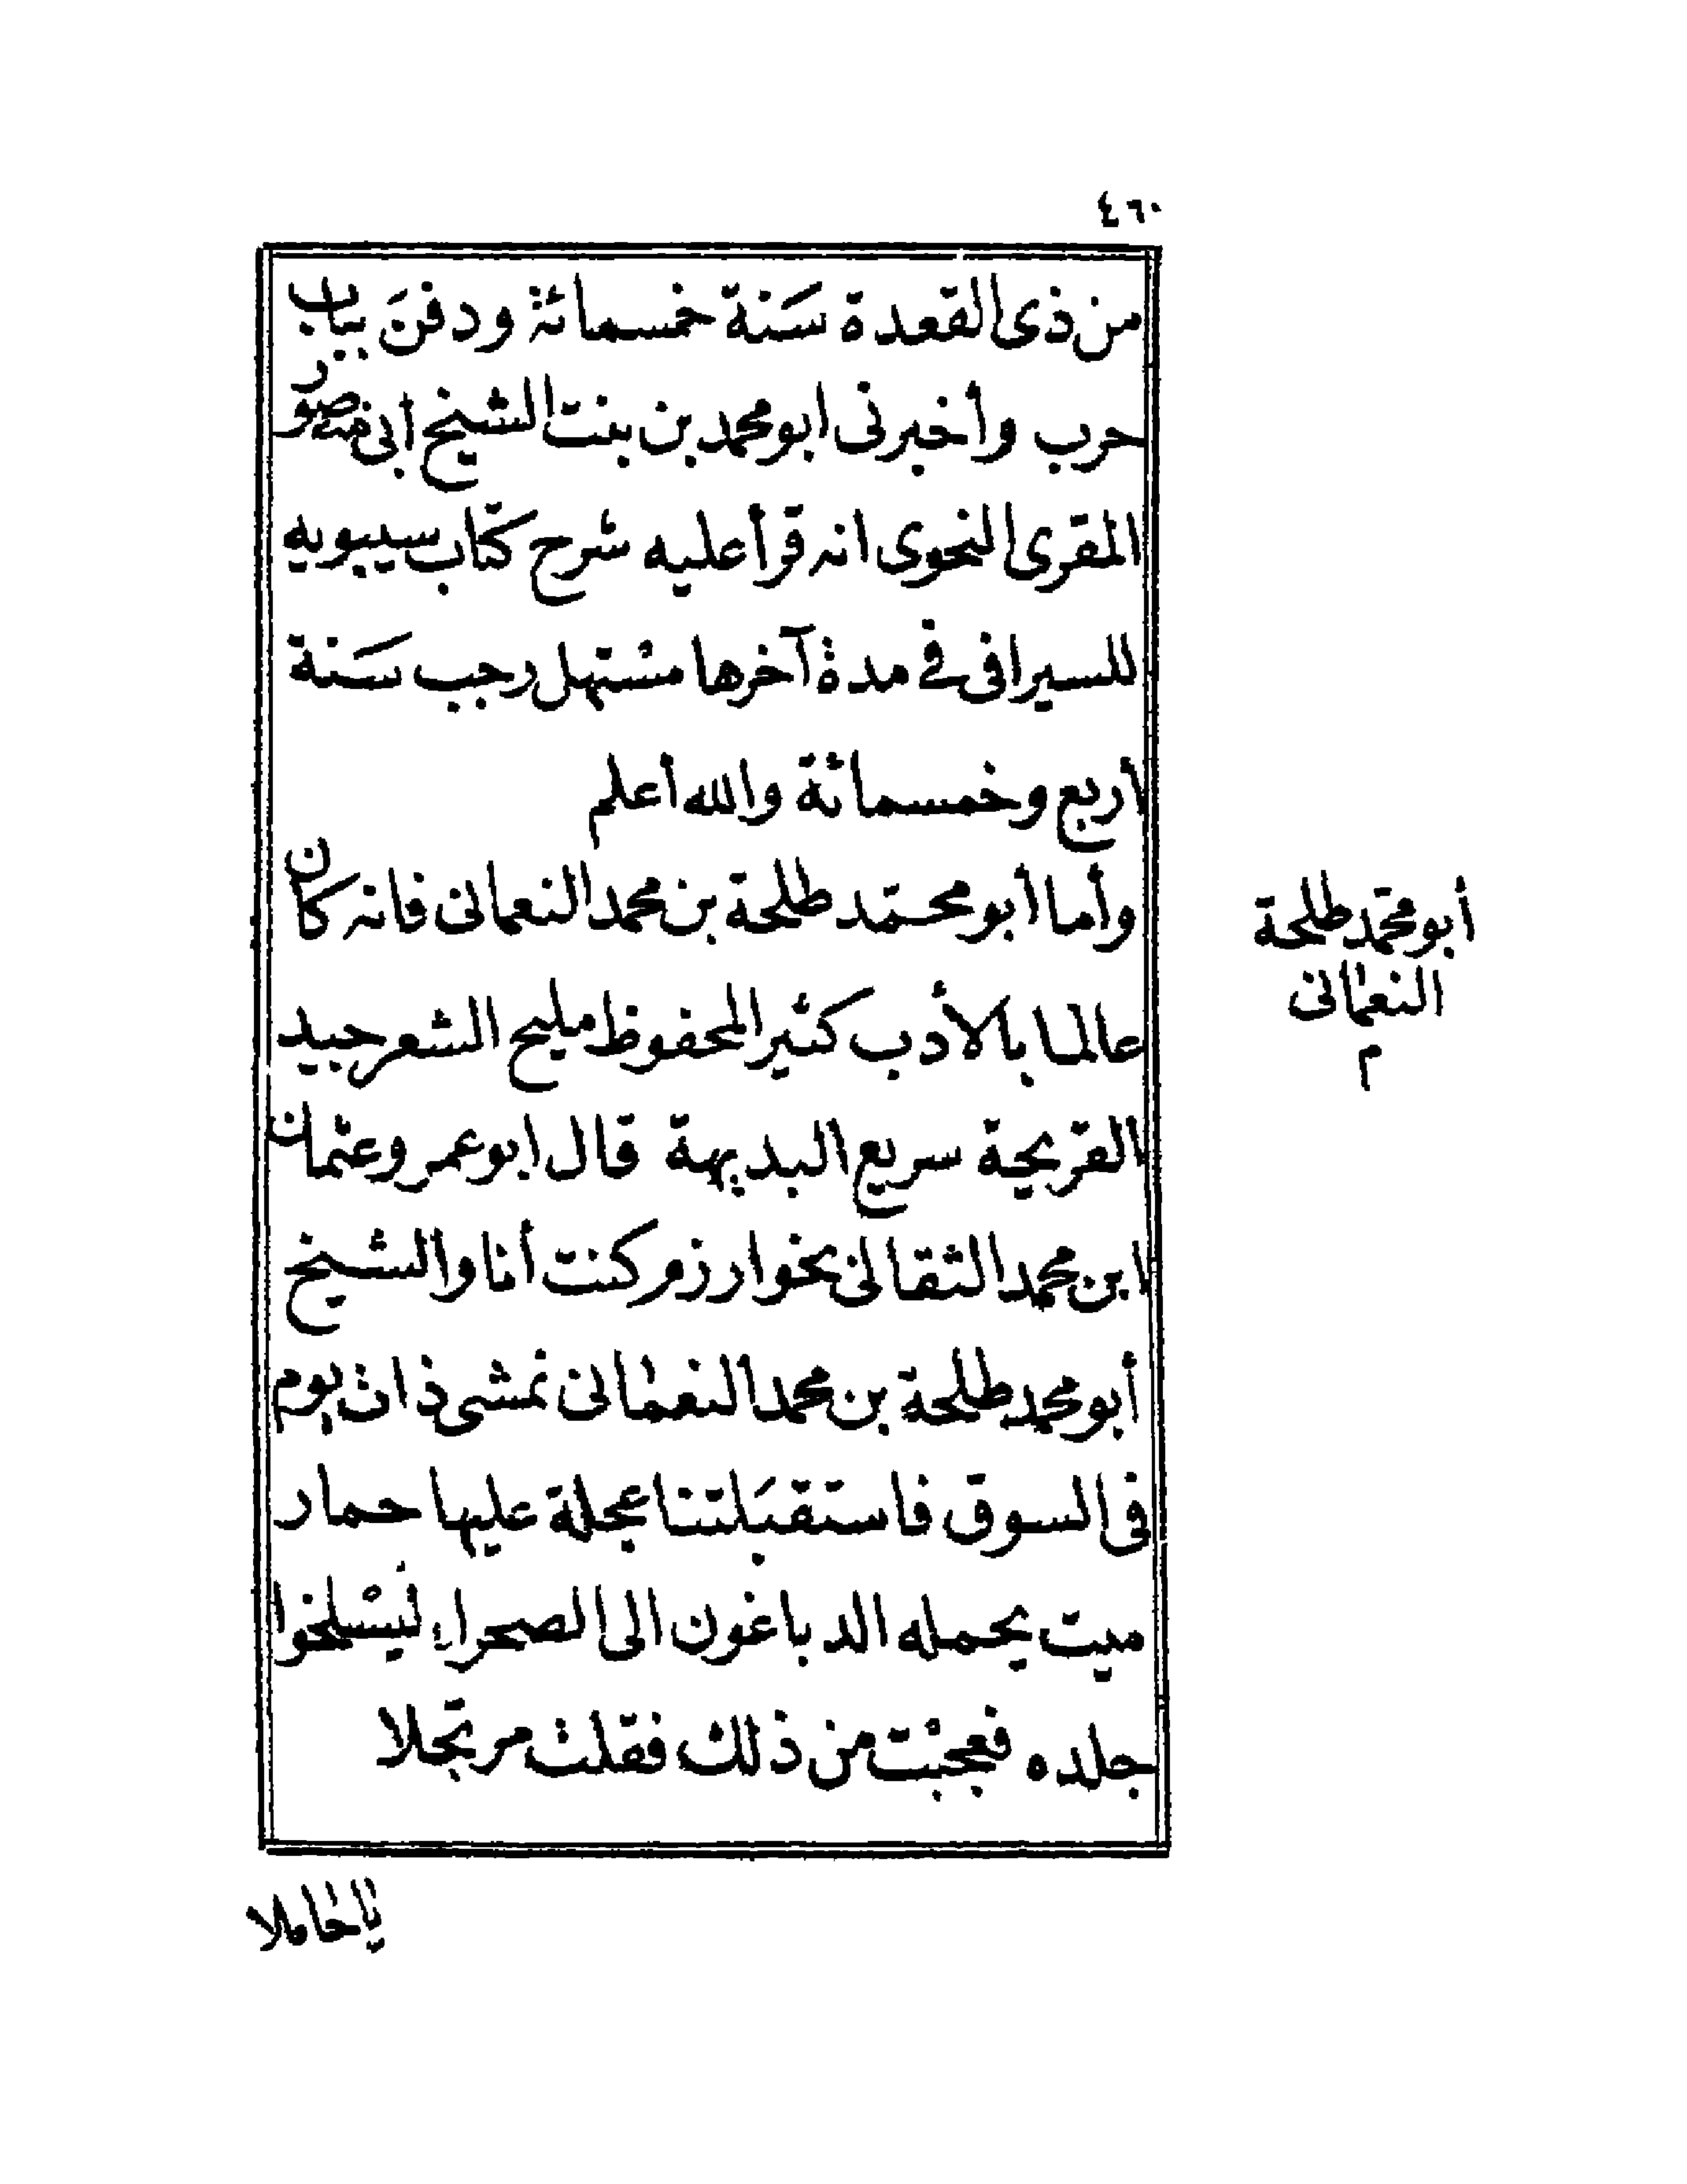 ٤٦٠
من ذى القعدة سَنة خمسمائة ودفنَ بباب
حرب وأخبرنى ابو محمد بن بنت الشيخ أبى منصور
المقرى النحوى انه قرأ عليه شرح كتاب سيبويه
للسيرافى فى مدة آخرها مستهل رجب سَنة
أربع وخمسمائة والله أعلم
وأما أبو محمد طلحة بن محمد النعمانى فانه كان
عالما بالأدب كثير المحفوظ مليح الشعر جيد
القريحة سريع البديهة قال ابو عمرو عثمان
ابن محمد الثقالى بخوارزم كنت أنا والشيخ
أبو محمد طلحة بن محمد النعمانى نمشى ذات يوم
فى السوق فاستقبَلتنا عجلة عليها حمار
ميت يحمله الدباغون الى الصحراء ليسلخوا
جلده فعجبت من ذلك فقلت مرتجلا
أبو محمد طلحة
النعمانى
م
يا حاملا